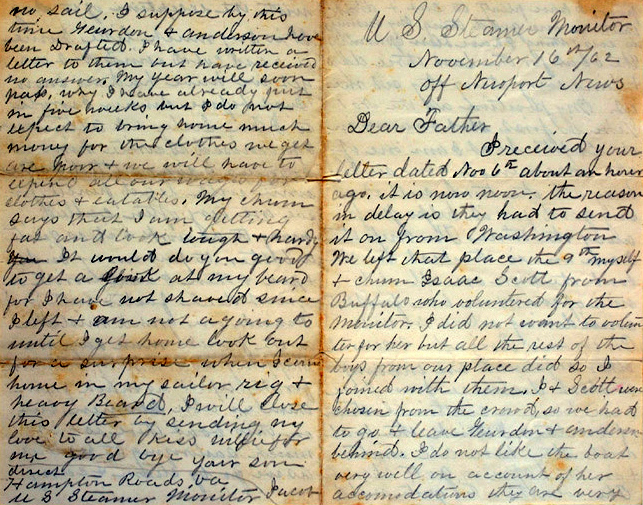 U. S. Steamer Monitor
November 16th/62
off Newport News
Dear Father
I received your
letter dated Nov 6th about an hour
ago. it is now noon. the reason
in delay is they had to send
it on from Washington
We left that place the 9th myself
& chum Isaac Scott from
Buffalo who volunteered for the
Monitor. I did not want to volun
teer for her but all the rest of the
boys from our place did so I
joined with them. I & Scott were
chosen from the crowd, so we had
to go & leave Geurdon & anderson
behind. I do not like the boat
very well on account of her
accomodations they are very
no sail. I suppose by this
time Geurdon & anderson have
been Drafted. I have written a
letter to them but have received
no answer. My year will soon
pass, why I have already put
in five weeks but I do not
expect to bring home much
money for the clothes we get
are poor & we will have to
expend all our
clothes & eatables. My chum
says that I am getting
fat and look tough & hardy
It would do you good
to get a look at my beard
for I have not shaved since
I left & am not a going to
until I get home look out
for a surprise when I come
home in my sailor rig &
heavy Beard. I will close
this letter by sending my
love to all kiss for
me good bye your son
direct
Hampton Roads Va
U S Steamer Monitor Jacob